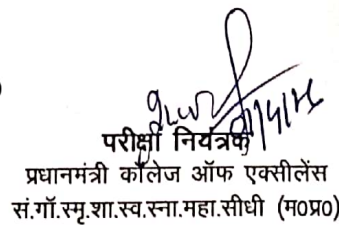 परीक्षा नियंत्रक
प्रधानमंत्री कॉलेज ऑफ एक्सीलेंस
सं.गाँ.स्मृ.शा.स्व.स्ना.महा.सीधी (म०प्र०)